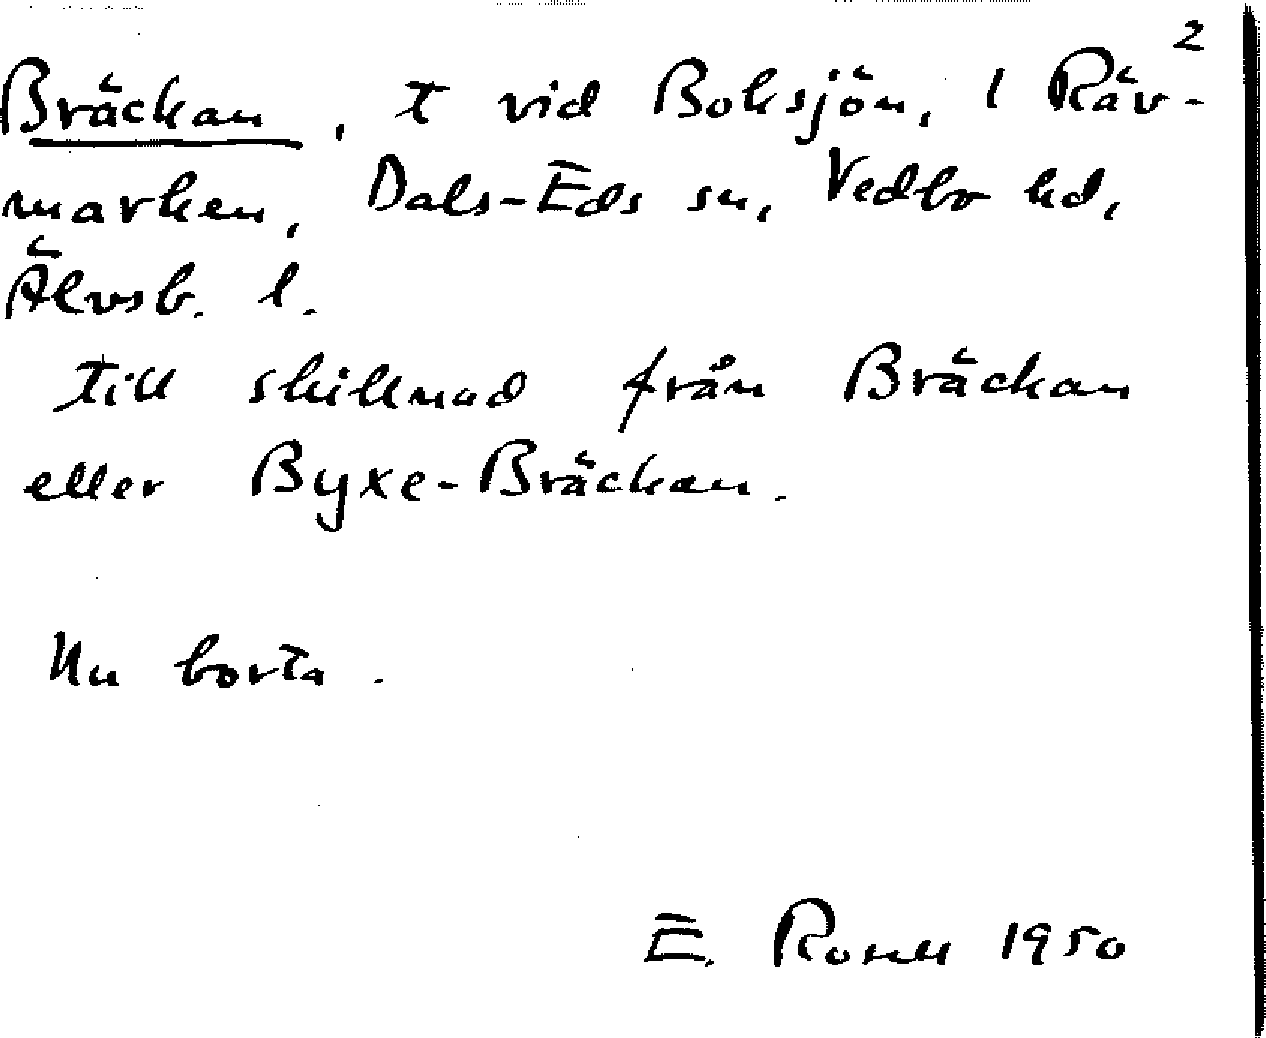 2
Bräckan, t vid Boksjön, 1 Räv-
marken, Dals-Eds sn, Vedbo hd,
Älvsb. l.
till skillnad från Bräckan
eller Byxe-Bräckan.
Nu borta.
E. 1950